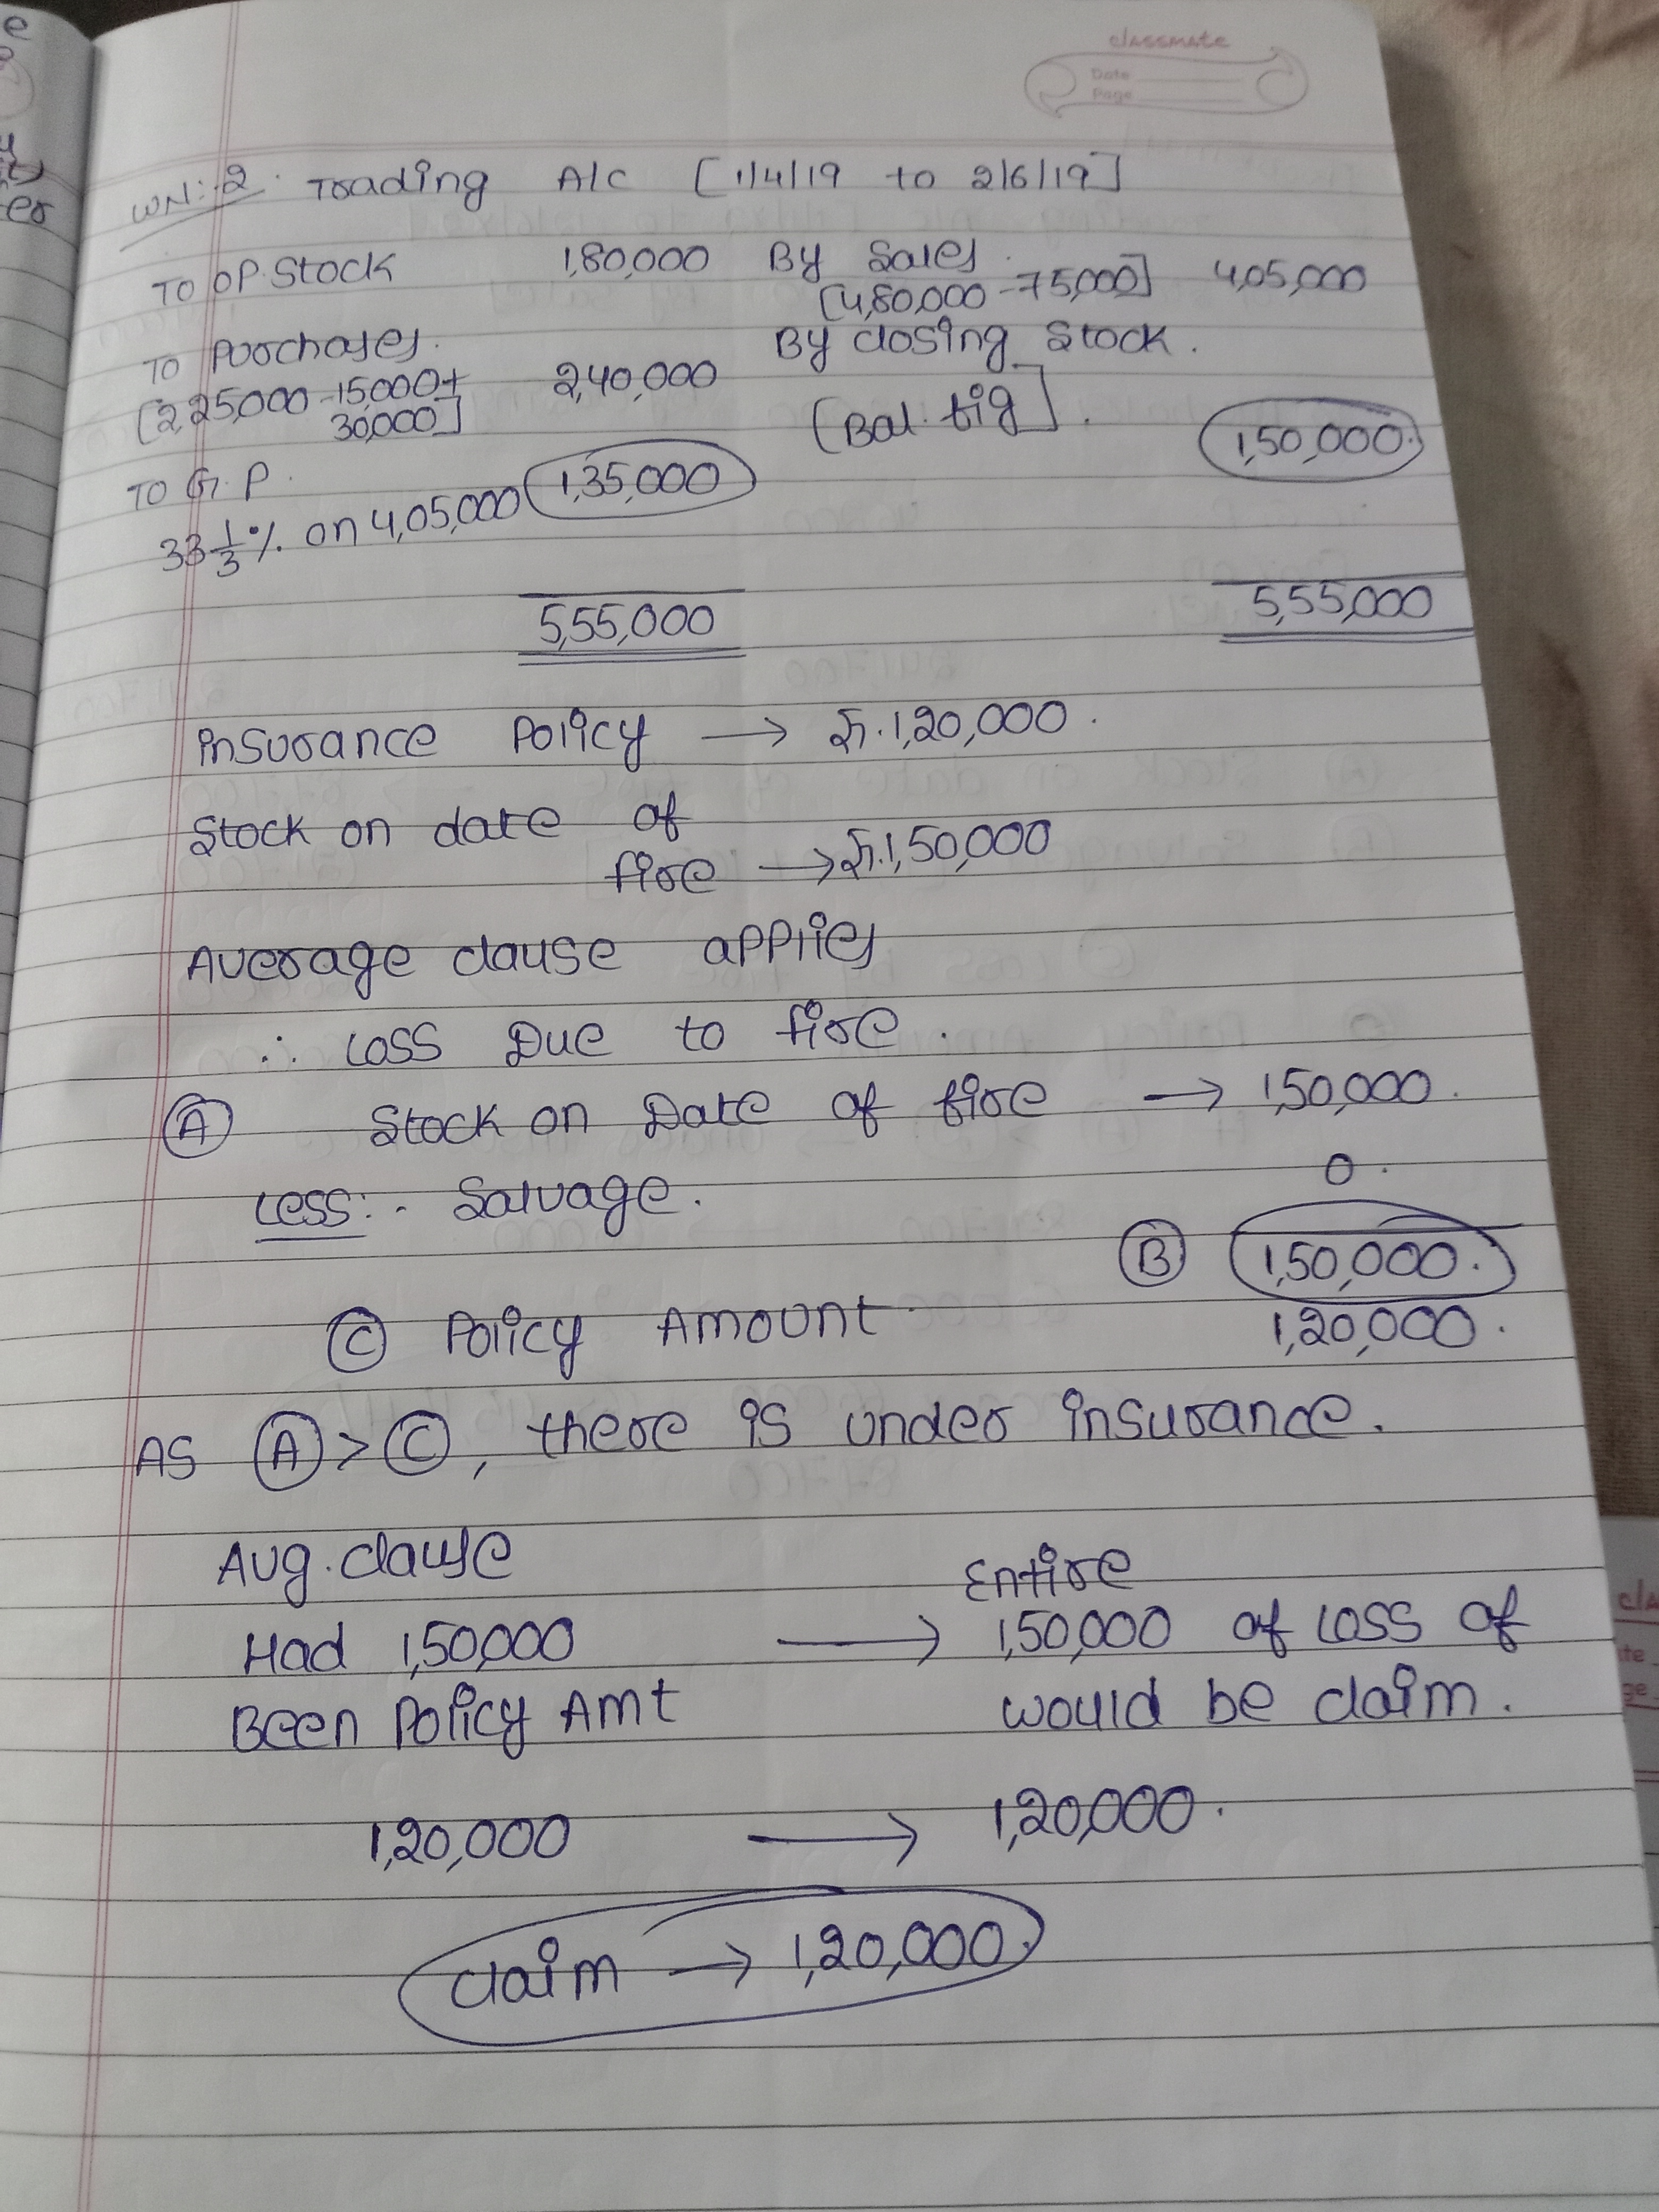 classmate
Date
Page
WN:-2. Trading A/C [1/4/19 to 2/6/19]
To OP. Stock 1,80,000 By Sales 
[4,80,000 - 75,000] 4,05,000
To Purchases. By closing Stock.
[2,25,000 - 15,000 + 2,40,000
30,000] [Bal. fig]. 1,50,000.
To G.P. 1,35,000
33 1/3 % on 4,05,000
5,55,000 5,55,000
insurance Policy → रु.1,20,000.
Stock on date of
fire → रु.1,50,000
Average clause applies
∴ Loss Due to fire.
Ⓐ Stock on Date of fire → 1,50,000.
Less:- Salvage. 0.
Ⓑ 1,50,000.
Ⓒ Policy Amount. 1,20,000.
As Ⓐ > Ⓒ, there is under insurance.
Avg. clause
Entire
Had 1,50,000 → 1,50,000 of Loss of
Been Policy Amt would be claim.
1,20,000 → 1,20,000.
claim → 1,20,000.